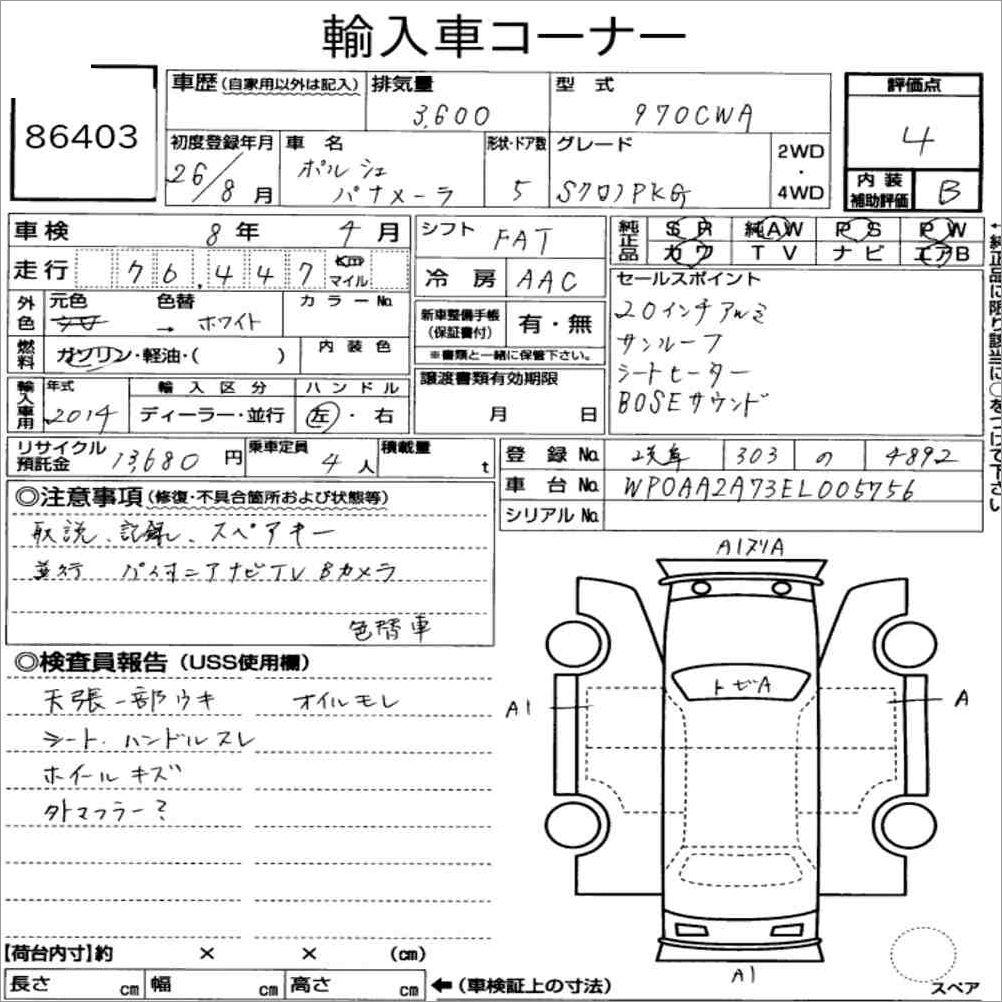 輸入車コーナー
86403
車歴 (自家用以外は記入) 排気量 3,600 型式 970CWA 評価点 4
初度登録年月 26/8月 車名 ポルシェ パナメーラ 形状・ドア数 5 グレード Sクロノ PKG 2WD・4WD
内装補助評価 B
車検 8年 4月 シフト FAT
純正品 SR 純AW PS PW
カワ TV ナビ エアB
走行 76,447 Km マイル 冷房 AAC
セールスポイント
20インチアルミ
サンルーフ
シートヒーター
BOSEサウンド
外色 元色 色替 → ホワイト カラーNo.
新車整備手帳(保証書付) 有・無
※書類と一緒に保管下さい。
燃料 ガソリン・軽油・( ) 内装色
譲渡書類有効期限 月 日
輸入車用 年式 2014 輸入区分 ディーラー・並行 ハンドル 左・右
リサイクル預託金 13,680円 乗車定員 4人 積載量 t
登録No. 303 の 4892
車台No. WP0AA2A73EL005756
シリアルNo.
←純正品に限り該当に○をつけて下さい
◎注意事項 (修復・不具合箇所および状態等)
取説、記録、スペアキー
並行 パイオニアナビTV Bカメラ
色替車
◎検査員報告 (USS使用欄)
天張一部ウキ オイルモレ
シート、ハンドルスレ
ホイールキズ
外マフラー?
A1スリA
トビA
A1
A
A1
スペア
【荷台内寸】約 × × (cm)
長さ cm 幅 cm 高さ cm ←(車検証上の寸法)